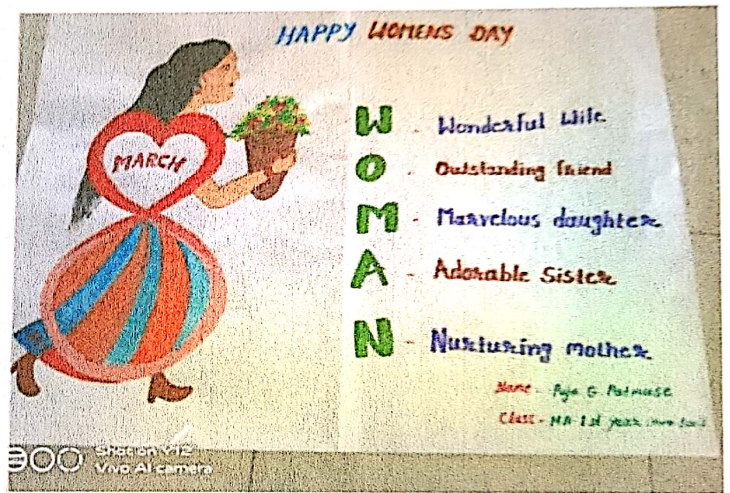 HAPPY WOMENS DAY
MARCH
W - Wonderful Wife
O - Outstanding friend
M - Marvelous daughter
A - Adorable Sister
N - Nurturing mother
Name - Puja G
Class - MA 1st year
Shot on Y12
Vivo AI camera